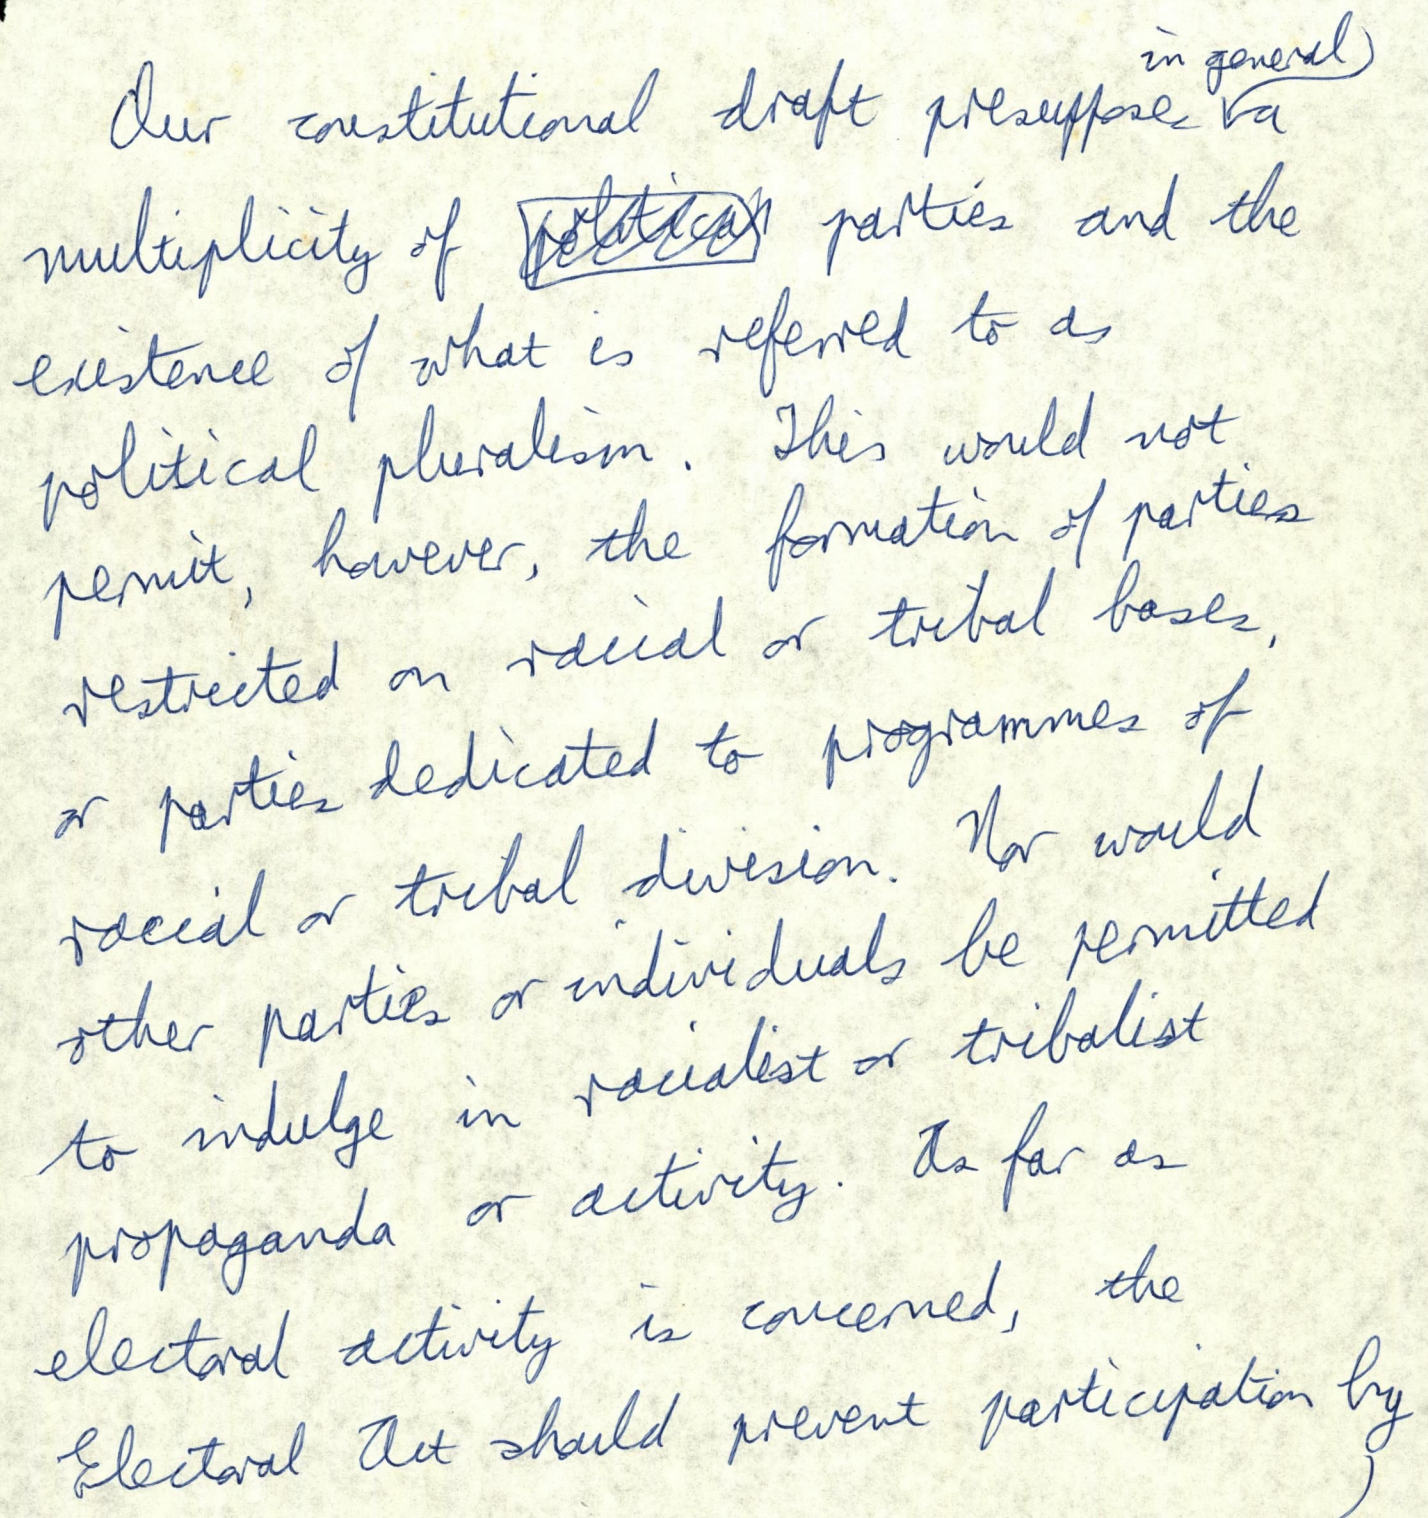 in general
Our constitutional draft presupposes a
multiplicity of political parties and the
existence of what is referred to as
political pluralism. This would not
permit, however, the formation of parties
restricted on racial or tribal bases,
or parties dedicated to programmes of
racial or tribal division. Nor would
other parties or individuals be permitted
to indulge in racialist or tribalist
propaganda or activity. As far as
electoral activity is concerned, the
Electoral Act should prevent participation by